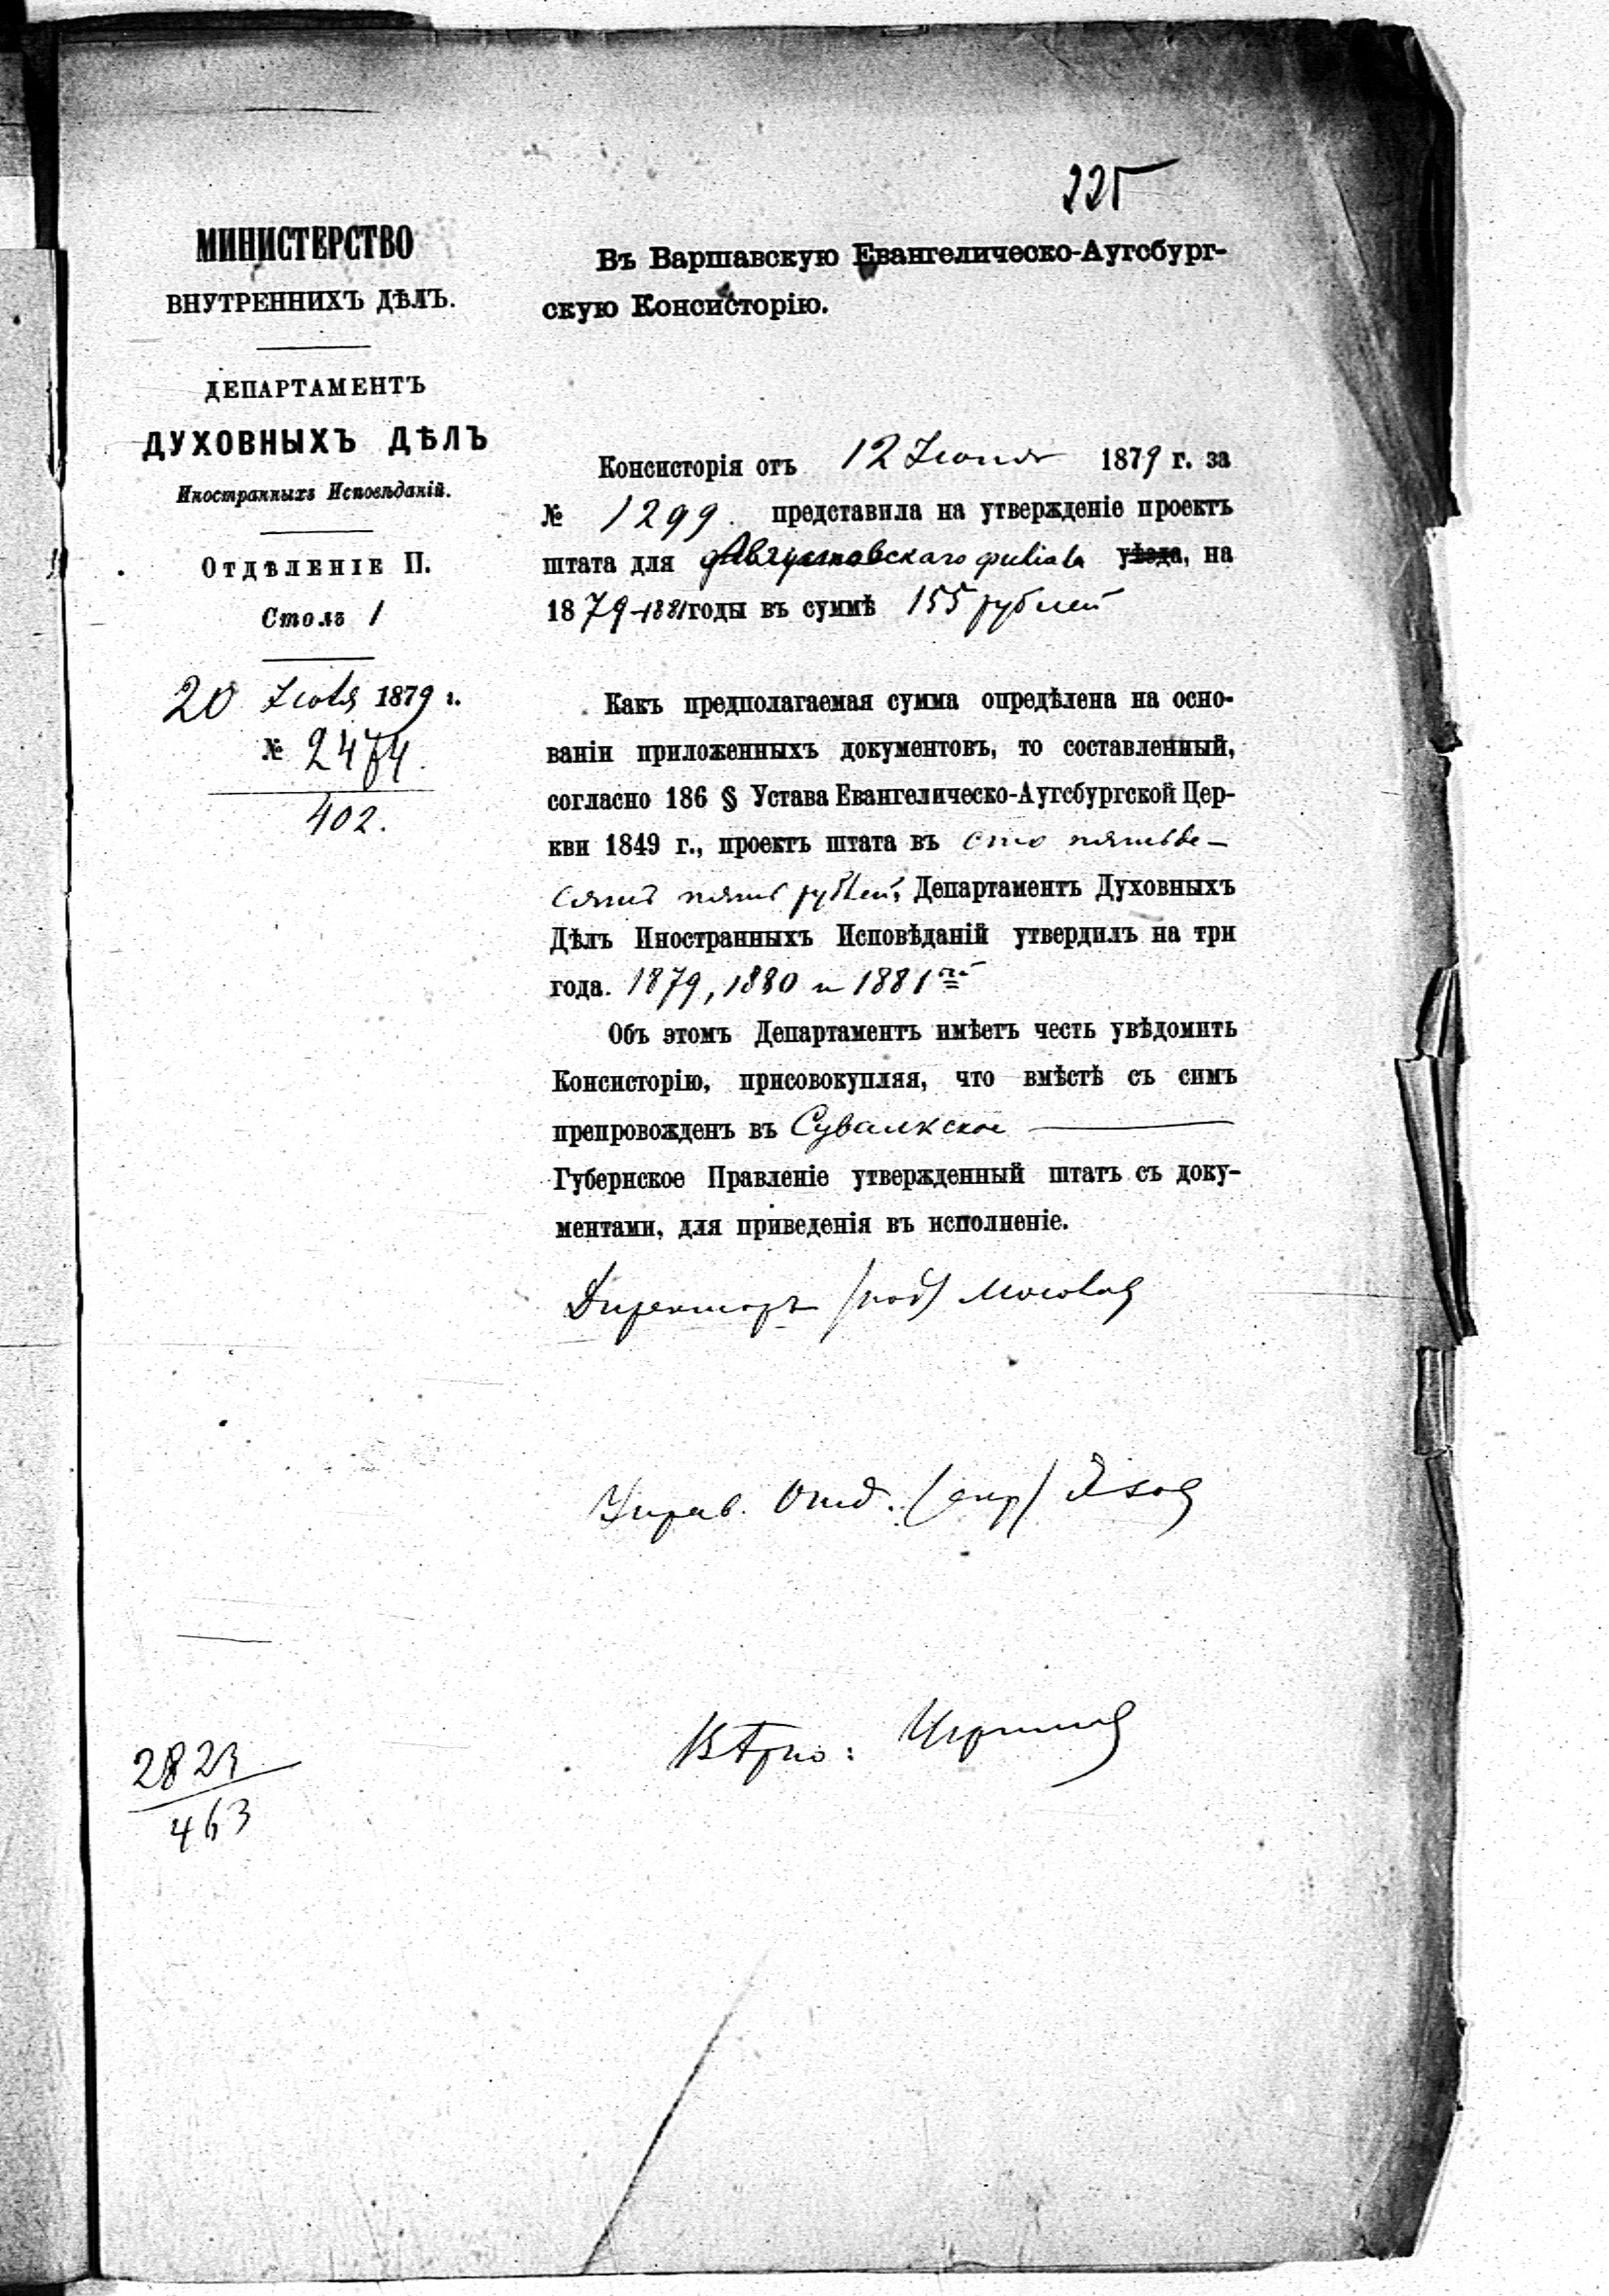 225
МИНИСТЕРСТВО
ВНУТРЕННИХЪ ДѢЛЪ.
ДЕПАРТАМЕНТЪ
ДУХОВНЫХЪ ДѢЛЪ
Иностранныхъ Исповѣданій.
ОТДѢЛЕНІЕ II.
Столъ 1
20 Іюля 1879 г.
№ 2474.
402.
Въ Варшавскую Евангелическо-Аугсбург-
скую Консисторію.
Консисторія отъ 12 Іюня 1879 г. за
№ 1299. представила на утвержденіе проектъ
штата для Августовскаго филіала уѣзда, на
1879-1881 годы въ суммѣ 155 рублей
Какъ предполагаемая сумма опредѣлена на осно-
ваніи приложенныхъ документовъ, то составленный,
согласно 186 § Устава Евангелическо-Аугсбургской Цер-
кви 1849 г., проектъ штата въ сто пятьде-
сятъ пять рублей, Департаментъ Духовныхъ
Дѣлъ Иностранныхъ Исповѣданій утвердилъ на три
года. 1879, 1880 и 1881
Объ этомъ Департаментъ имѣетъ честь увѣдомить
Консисторію, присовокупляя, что вмѣстѣ съ симъ
препровожденъ въ Сувалкское
Губернское Правленіе утвержденный штатъ съ доку-
ментами, для приведенія въ исполненіе.
Директоръ (под) Мосолов
Управ. Отд. (скр)
Вѣрно:
2823
463